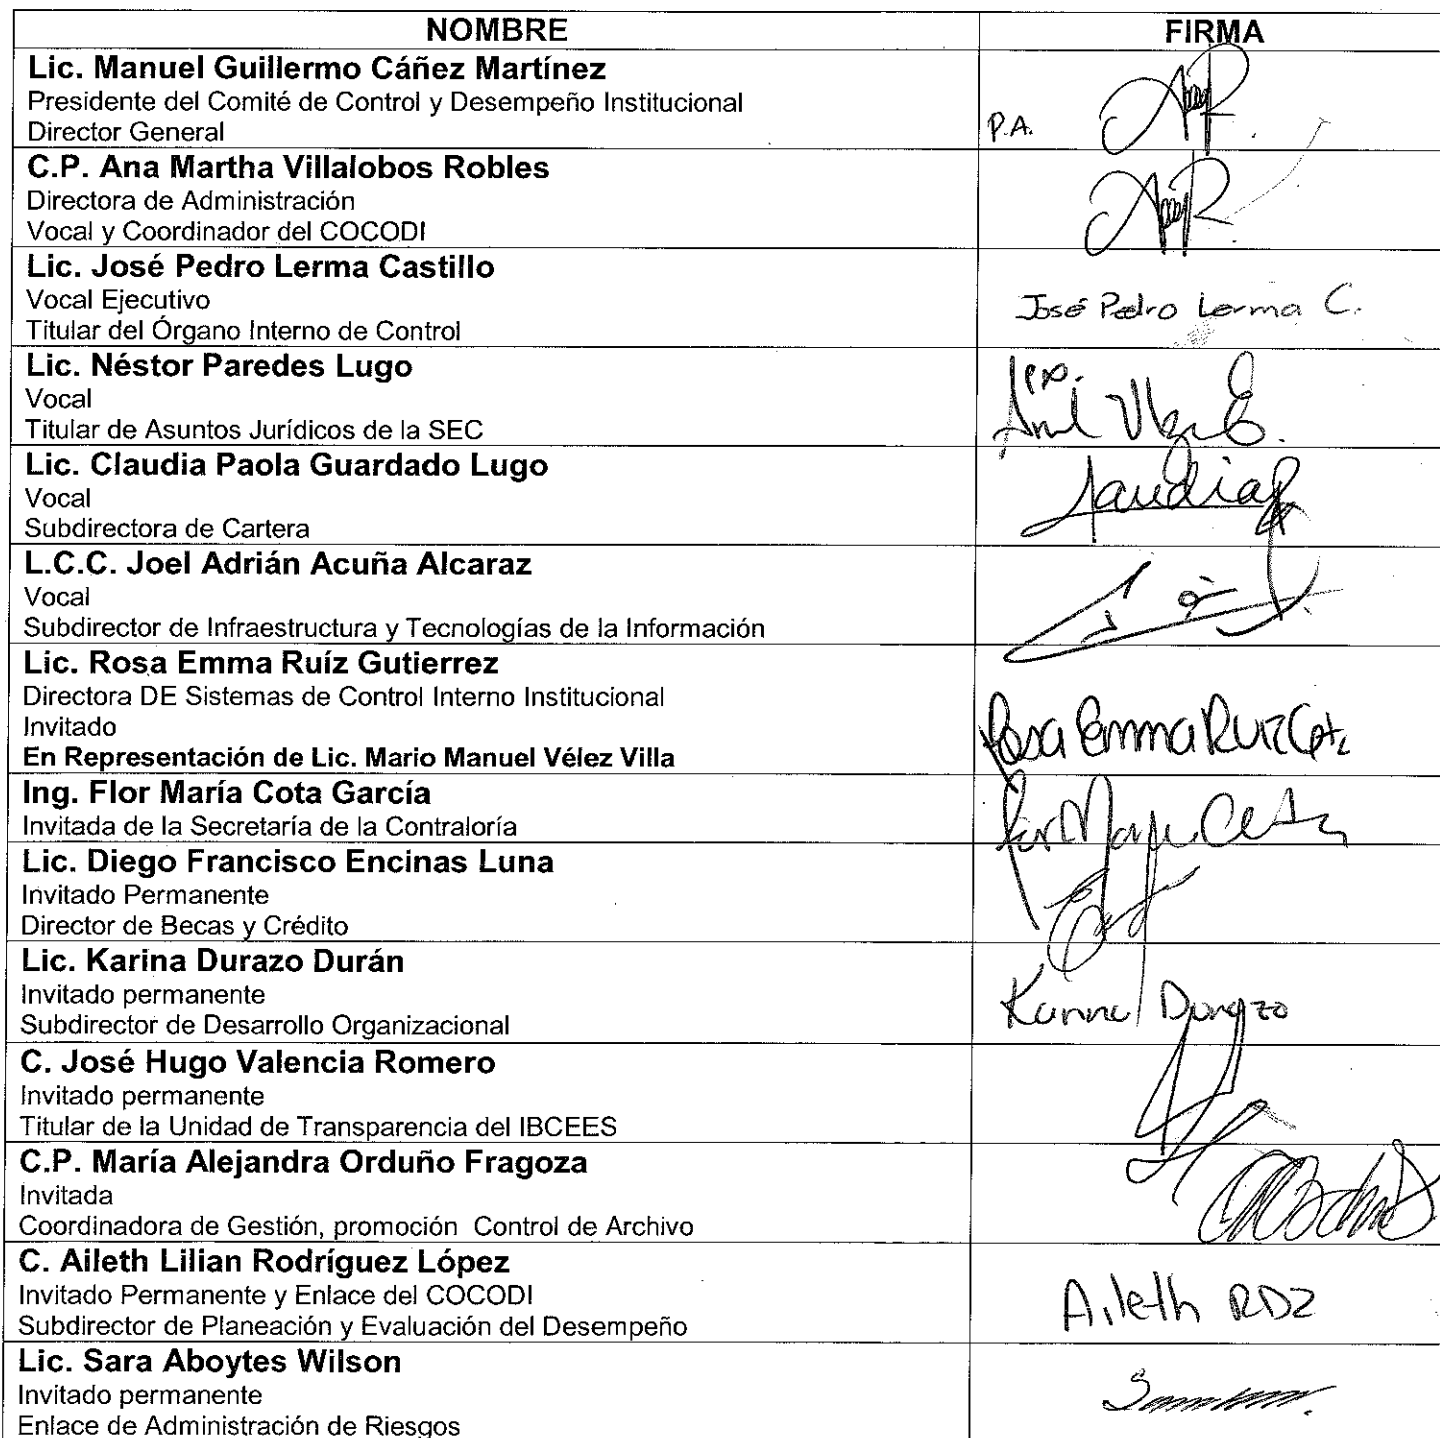 NOMBRE FIRMA
Lic. Manuel Guillermo Cáñez Martínez
Presidente del Comité de Control y Desempeño Institucional
Director General
P.A.
C.P. Ana Martha Villalobos Robles
Directora de Administración
Vocal y Coordinador del COCODI
Lic. José Pedro Lerma Castillo
Vocal Ejecutivo
Titular del Órgano Interno de Control
José Pedro Lerma C.
Lic. Néstor Paredes Lugo
Vocal
Titular de Asuntos Jurídicos de la SEC
Lic. Claudia Paola Guardado Lugo
Vocal
Subdirectora de Cartera
L.C.C. Joel Adrián Acuña Alcaraz
Vocal
Subdirector de Infraestructura y Tecnologías de la Información
Lic. Rosa Emma Ruíz Gutierrez
Directora DE Sistemas de Control Interno Institucional
Invitado
En Representación de Lic. Mario Manuel Vélez Villa
Rosa Emma Ruiz Gtz
Ing. Flor María Cota García
Invitada de la Secretaría de la Contraloría
Lic. Diego Francisco Encinas Luna
Invitado Permanente
Director de Becas y Crédito
Lic. Karina Durazo Durán
Invitado permanente
Subdirector de Desarrollo Organizacional
Karina Durazo
C. José Hugo Valencia Romero
Invitado permanente
Titular de la Unidad de Transparencia del IBCEES
C.P. María Alejandra Orduño Fragoza
Invitada
Coordinadora de Gestión, promoción Control de Archivo
C. Aileth Lilian Rodríguez López
Invitado Permanente y Enlace del COCODI
Subdirector de Planeación y Evaluación del Desempeño
Aileth RDZ
Lic. Sara Aboytes Wilson
Invitado permanente
Enlace de Administración de Riesgos